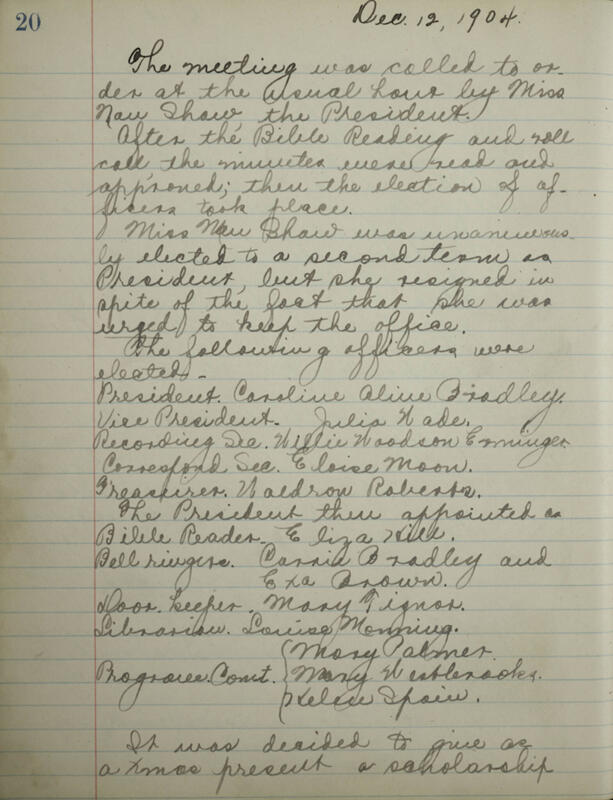 20
Dec. 12, 1904.
The meeting was called to or-
der at the usual hour by Miss
Nan Shaw, the President.
After the Bible Reading and roll
call the minutes were read and
approved; then the election of of-
ficers took place.
Miss Nan Shaw was unanimous-
ly elected to a second term as
President, but she resigned in
spite of the fact that she was
urged to keep the office.
The following officers were
elected-
President. Caroline Aline Bradley.
Vice President. Julia Wade.
Recording Sec. Willie Woodson Erminger
Correspond Sec. Eloise Moon.
Treasurer. Waldron Roberts.
The President then appointed as
Bible Reader- Eliza Hill.
Bell ringers. Carrie Bradley and
Exa Brown.
Door keeper. Mary Tignor.
Librarian. Louise Monning.
Mary Palmer.
Program Comt. Mary Westbrooks.
Helen Spain.
It was decided to give as
a Xmas present a scholarship